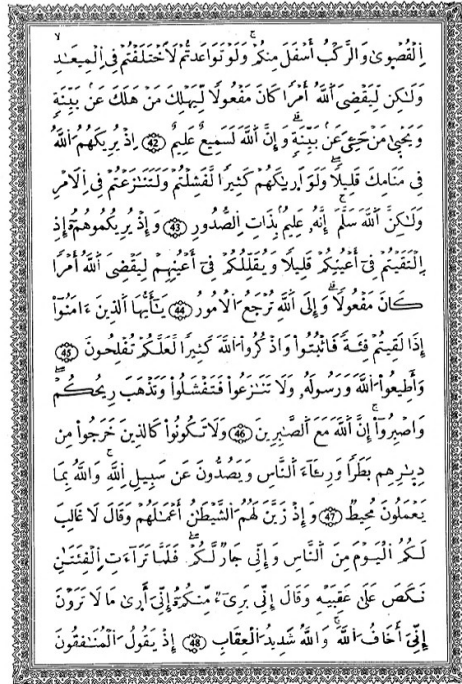 ٧
اِ۬لْقُصْو۪يٰ وَالرَّكْبُ أَسْفَلَ مِنكُمْۖ وَلَوْ تَوَاعَدتُّمْ لَاخْتَلَفْتُمْ فِے اِ۬لْمِيعَٰدِ
وَلَٰكِن لِّيَقْضِيَ اَ۬للَّهُ أَمْراٗ كَانَ مَفْعُولاٗ لِّيَهْلِكَ مَنْ هَلَكَ عَنۢ بَيِّنَةٖ
وَيَحْيٰ۪ي مَنْ حَيِيَ عَنۢ بَيِّنَةٖۖ وَإِنَّ اَ۬للَّهَ لَسَمِيعٌ عَلِيمٌ 42 اِذْ يُرِيكَهُمُ اُ۬للَّهُ
فِے مَنَامِكَ قَلِيلاٗۖ وَلَوَ اَر۪يٰكَهُمْ كَثِيراٗ لَّفَشِلْتُمْ وَلَتَنَٰزَعْتُمْ فِے اِ۬لَامْرِ
وَلَٰكِنَّ اَ۬للَّهَ سَلَّمَۖ إِنَّهُۥ عَلِيمُۢ بِذَاتِ اِ۬لصُّدُورِ 43 وَإِذْ يُرِيكُمُوهُمُۥٓ إِذِ
اِ۬لْتَقَيْتُمْ فِےٓ أَعْيُنِكُمْ قَلِيلاٗ وَيُقَلِّلُكُمْ فِےٓ أَعْيُنِهِمْ لِيَقْضِيَ اَ۬للَّهُ أَمْراٗ
كَانَ مَفْعُولاٗۖ وَإِلَي اَ۬للَّهِ تُرْجَعُ اُ۬لُامُورُ 44 يَٰٓأَيُّهَا اَ۬لذِينَ ءَامَنُوٓاْ
إِذَا لَقِيتُمْ فِئَةٗ فَاثْبُتُواْ وَاذْكُرُواْ اُ۬للَّهَ كَثِيراٗ لَّعَلَّكُمْ تُفْلِحُونَ 45
وَأَطِيعُواْ اُ۬للَّهَ وَرَسُولَهُۥ وَلَا تَنَٰزَعُواْ فَتَفْشَلُواْ وَتَذْهَبَ رِيحُكُمْۖ
وَاصْبِرُوٓاْۖ إِنَّ اَ۬للَّهَ مَعَ اَ۬لصَّٰبِرِينَ 46 وَلَا تَكُونُواْ كَالذِينَ خَرَجُواْ مِن
دِيٰ۪رِهِم بَطَراٗ وَرِئَآءَ اَ۬لنَّاسِ وَيَصُدُّونَ عَن سَبِيلِ اِ۬للَّهِۖ وَاللَّهُ بِمَا
يَعْمَلُونَ مُحِيطٌۖ 47 وَإِذْ زَيَّنَ لَهُمُ اُ۬لشَّيْطَٰنُ أَعْمَٰلَهُمْ وَقَالَ لَا غَالِبَ
لَكُمُ اُ۬لْيَوْمَ مِنَ اَ۬لنَّاسِ وَإِنِّے جَارٞ لَّكُمْۖ فَلَمَّا تَرَآءَتِ اِ۬لْفِئَتَٰنِ
نَكَصَ عَلَيٰ عَقِبَيْهِ وَقَالَ إِنِّے بَرِےٓءٞ مِّنكُمُۥٓ إِنِّيَ أَر۪يٰ مَا لَا تَرَوْنَ
إِنِّيَ أَخَافُ اُ۬للَّهَۖ وَاللَّهُ شَدِيدُ اُ۬لْعِقَابِ 48 إِذْ يَقُولُ اُ۬لْمُنَٰفِقُونَ